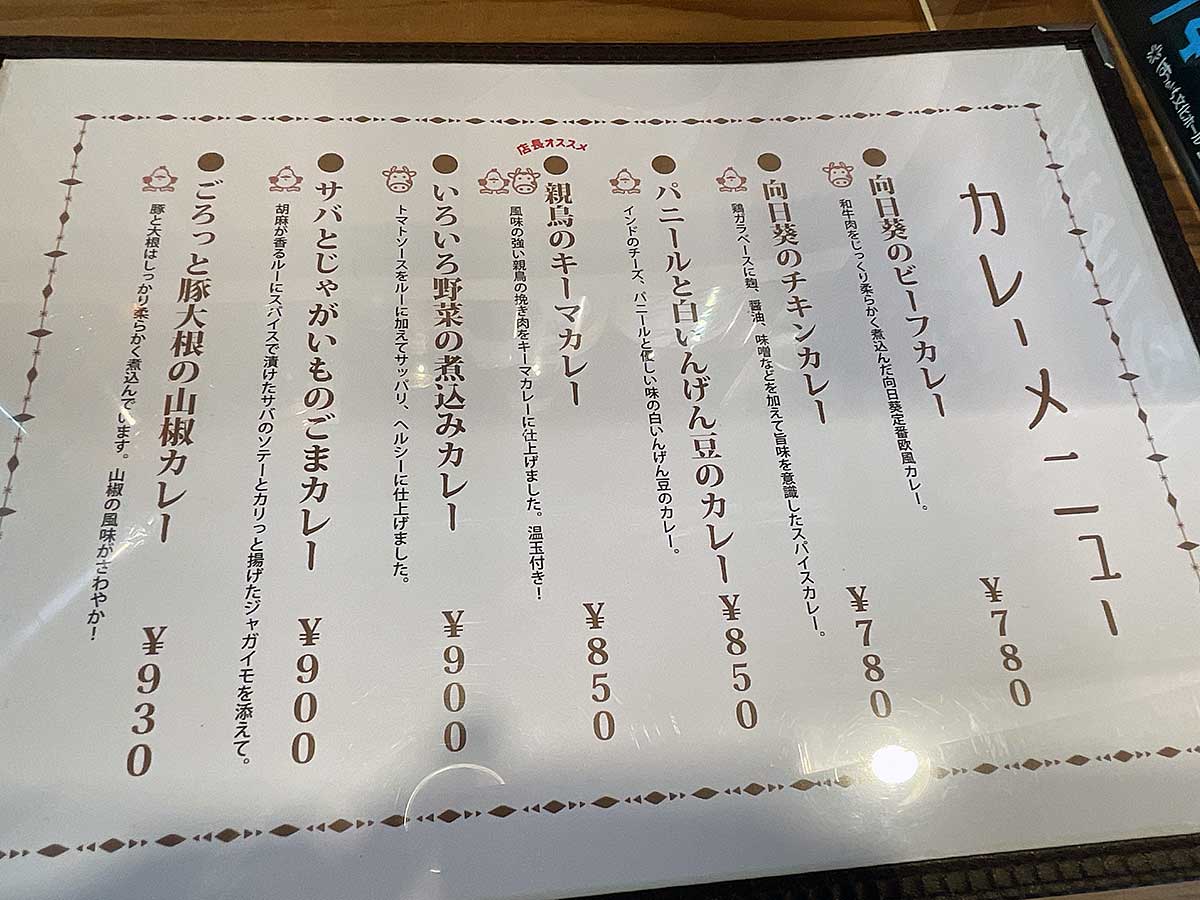 カレーメニュー
向日葵のビーフカレー
¥780
和牛肉をじっくり柔らかく煮込んだ向日葵定番欧風カレー。
向日葵のチキンカレー
¥780
鶏ガラベースに麹、醤油、味噌などを加えて旨味を意識したスパイスカレー。
パニールと白いんげん豆のカレー
¥850
インドのチーズ、パニールと優しい味の白いんげん豆のカレー。
店長オススメ
親鳥のキーマカレー
¥850
風味の強い親鳥の挽き肉をキーマカレーに仕上げました。温玉付き!
いろいろ野菜の煮込みカレー
¥900
トマトソースをルーに加えてサッパリ、ヘルシーに仕上げました。
サバとじゃがいものごまカレー
¥900
胡麻が香るルーにスパイスで漬けたサバのソテーとカリっと揚げたジャガイモを添えて。
ごろっと豚大根の山椒カレー
¥930
豚と大根はしっかり柔らかく煮込んでいます。山椒の風味がさわやか!